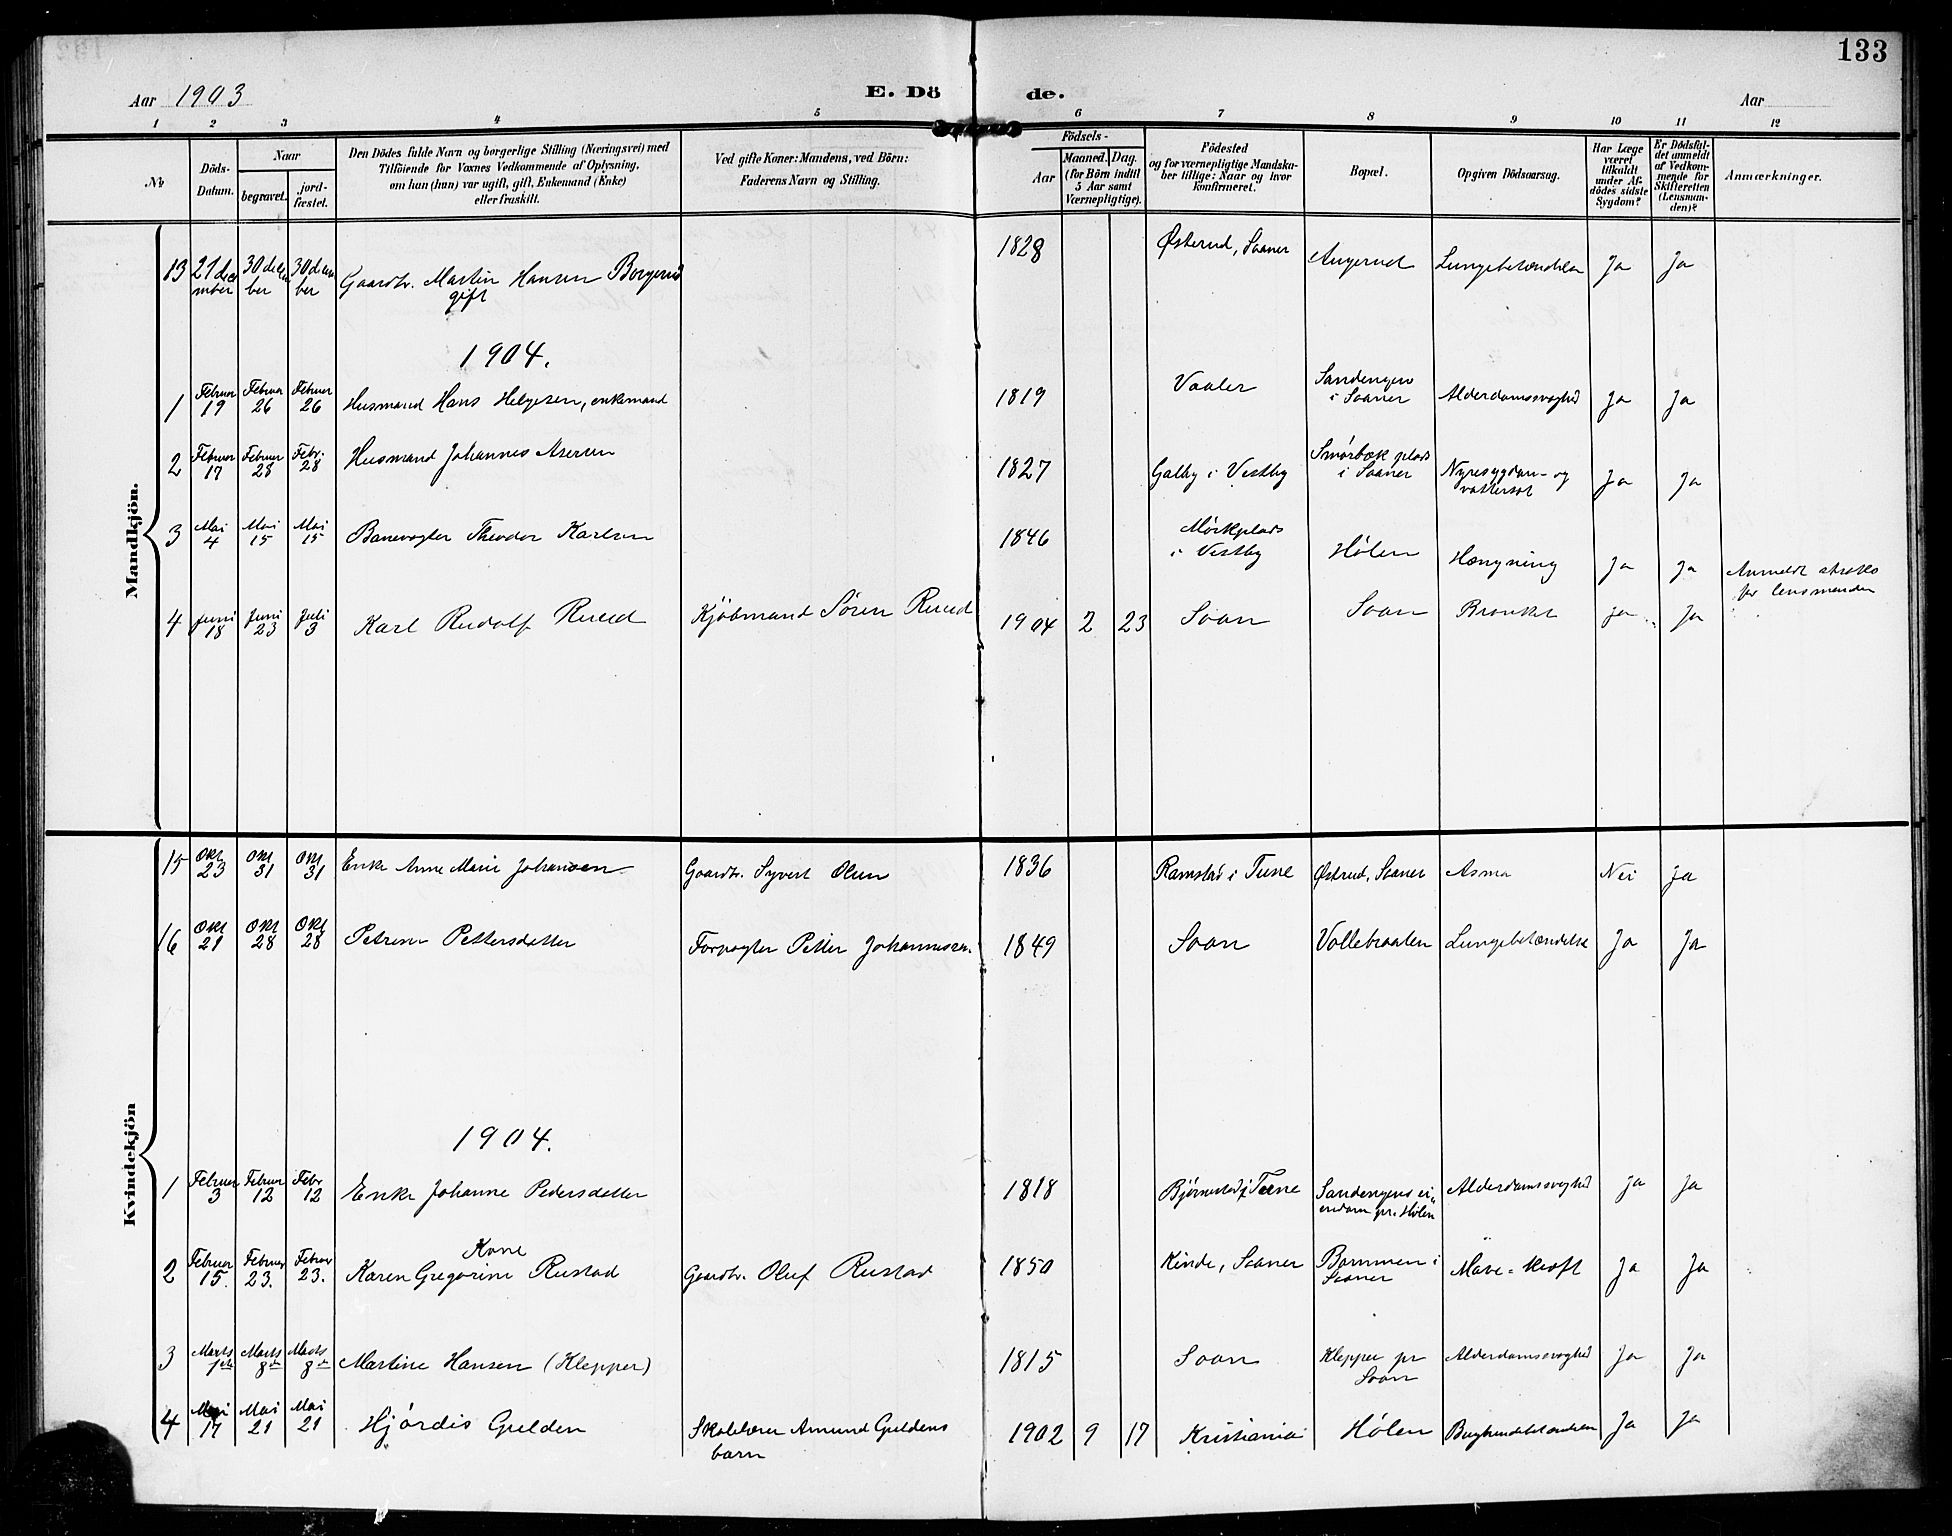 133
Aar 1903
E. Dö de.
Aar
1 2 3 4 5 6 7 8 9 10 11 12
No
Döds-Datum.
Naar
begravet.
jord-fæstet.
Den Dödes fulde Navn og borgerlige Stilling (Næringsvei) med
Tilföiende for Voxnes Vedkommende af Oplysning,
om han (hun) var ugift, gift, Enkemand (Enke)
eller fraskilt.
Ved gifte Koner: Mandens, ved Börn:
Faderens Navn og Stilling.
Födsels-
Aar
Maaned. Dag.
(for Börn indtil
5 Aar samt
Værnepligtige).
Födested
og for værnepligtige Mandska-
ber tillige: Naar og hvor
konfirmeret.
Bopæl.
Opgiven Dödsaarsag.
Har Læge
været
tilkaldt
under Af-
dödes sidste
Sygdom?
Er Dödsfal-
det anmeldt
af Vedkom-
mende for
Skifteretten
(Lensman-
den)?
Anmærkninger.
Mandkjön.
13 21 december 30 december 30 december Gaardbr. Martin Hansen Borgerud gift 1828 Østerud, Saaner Augerud Lungebetændelse Ja Ja
1904.
1 Februar 19 Februar 26 Februar 26 Husmand Hans Helgesen, enkemand 1819 Vaaler Sandengen i Saaner Alderdomssvaghed Ja Ja
2 Februar 17 Februar 28 Febr. 28 Husmand Johannes Asersen 1827 Galby i Vestby Smørbæk plads i Saaner Nyresygdom og vattersot Ja Ja
3 Mai 4 Mai 15 Mai 15 Banevogter Theodor Karlsen 1846 Mørkplads i Vestby Hølen Hængning Ja Ja Anmeldt straks for lensmanden
4 Juni 18 Juni 23 Juli 3 Karl Rudolf Ruud Kjøbmand Søren Ruud 1904 2 23 Soon Soon Bronkit Ja Ja
Kvindekjön
15 Okt 23 Okt 31 Okt 31 Enke Anne Marie Johansen Gaardbr. Syvert Olsen 1836 Ramstad i Tune Østrud, Saaner Asma Nei Ja
16 Okt 21 Okt 28 Okt 28 Petrine Pettersdatter Forpagter Petter Johannessen 1849 Soon Vollebraaten Lungebetændelse Ja Ja
1904.
1 Februar 3 Februar 12 Febr 12 Enke Johanne Pedersdatter 1818 Bjørnestad i Tune Sandengens ei-endom pr. Hølen Alderdomssvaghed Ja Ja
2 Februar 15. Februar 23. Februar 23. Kone Karen Gregorine Rustad Gaardbr. Oluf Rustad 1850 Kinde, Saaner Bommen i Saaner Mave-kræft Ja Ja
3 Marts 1ste Marts 8de Marts 8de Martine Hansen (Klepper) 1815 Soon Klepper pr Soon Alderdomssvaghed Ja Ja
4 Mai 17 Mai 21 Mai 21 Hjørdis Gulden Skolelærer Amund Guldens barn 1902 9 17 Kristiania Hølen Bughindebetændelse Ja Ja